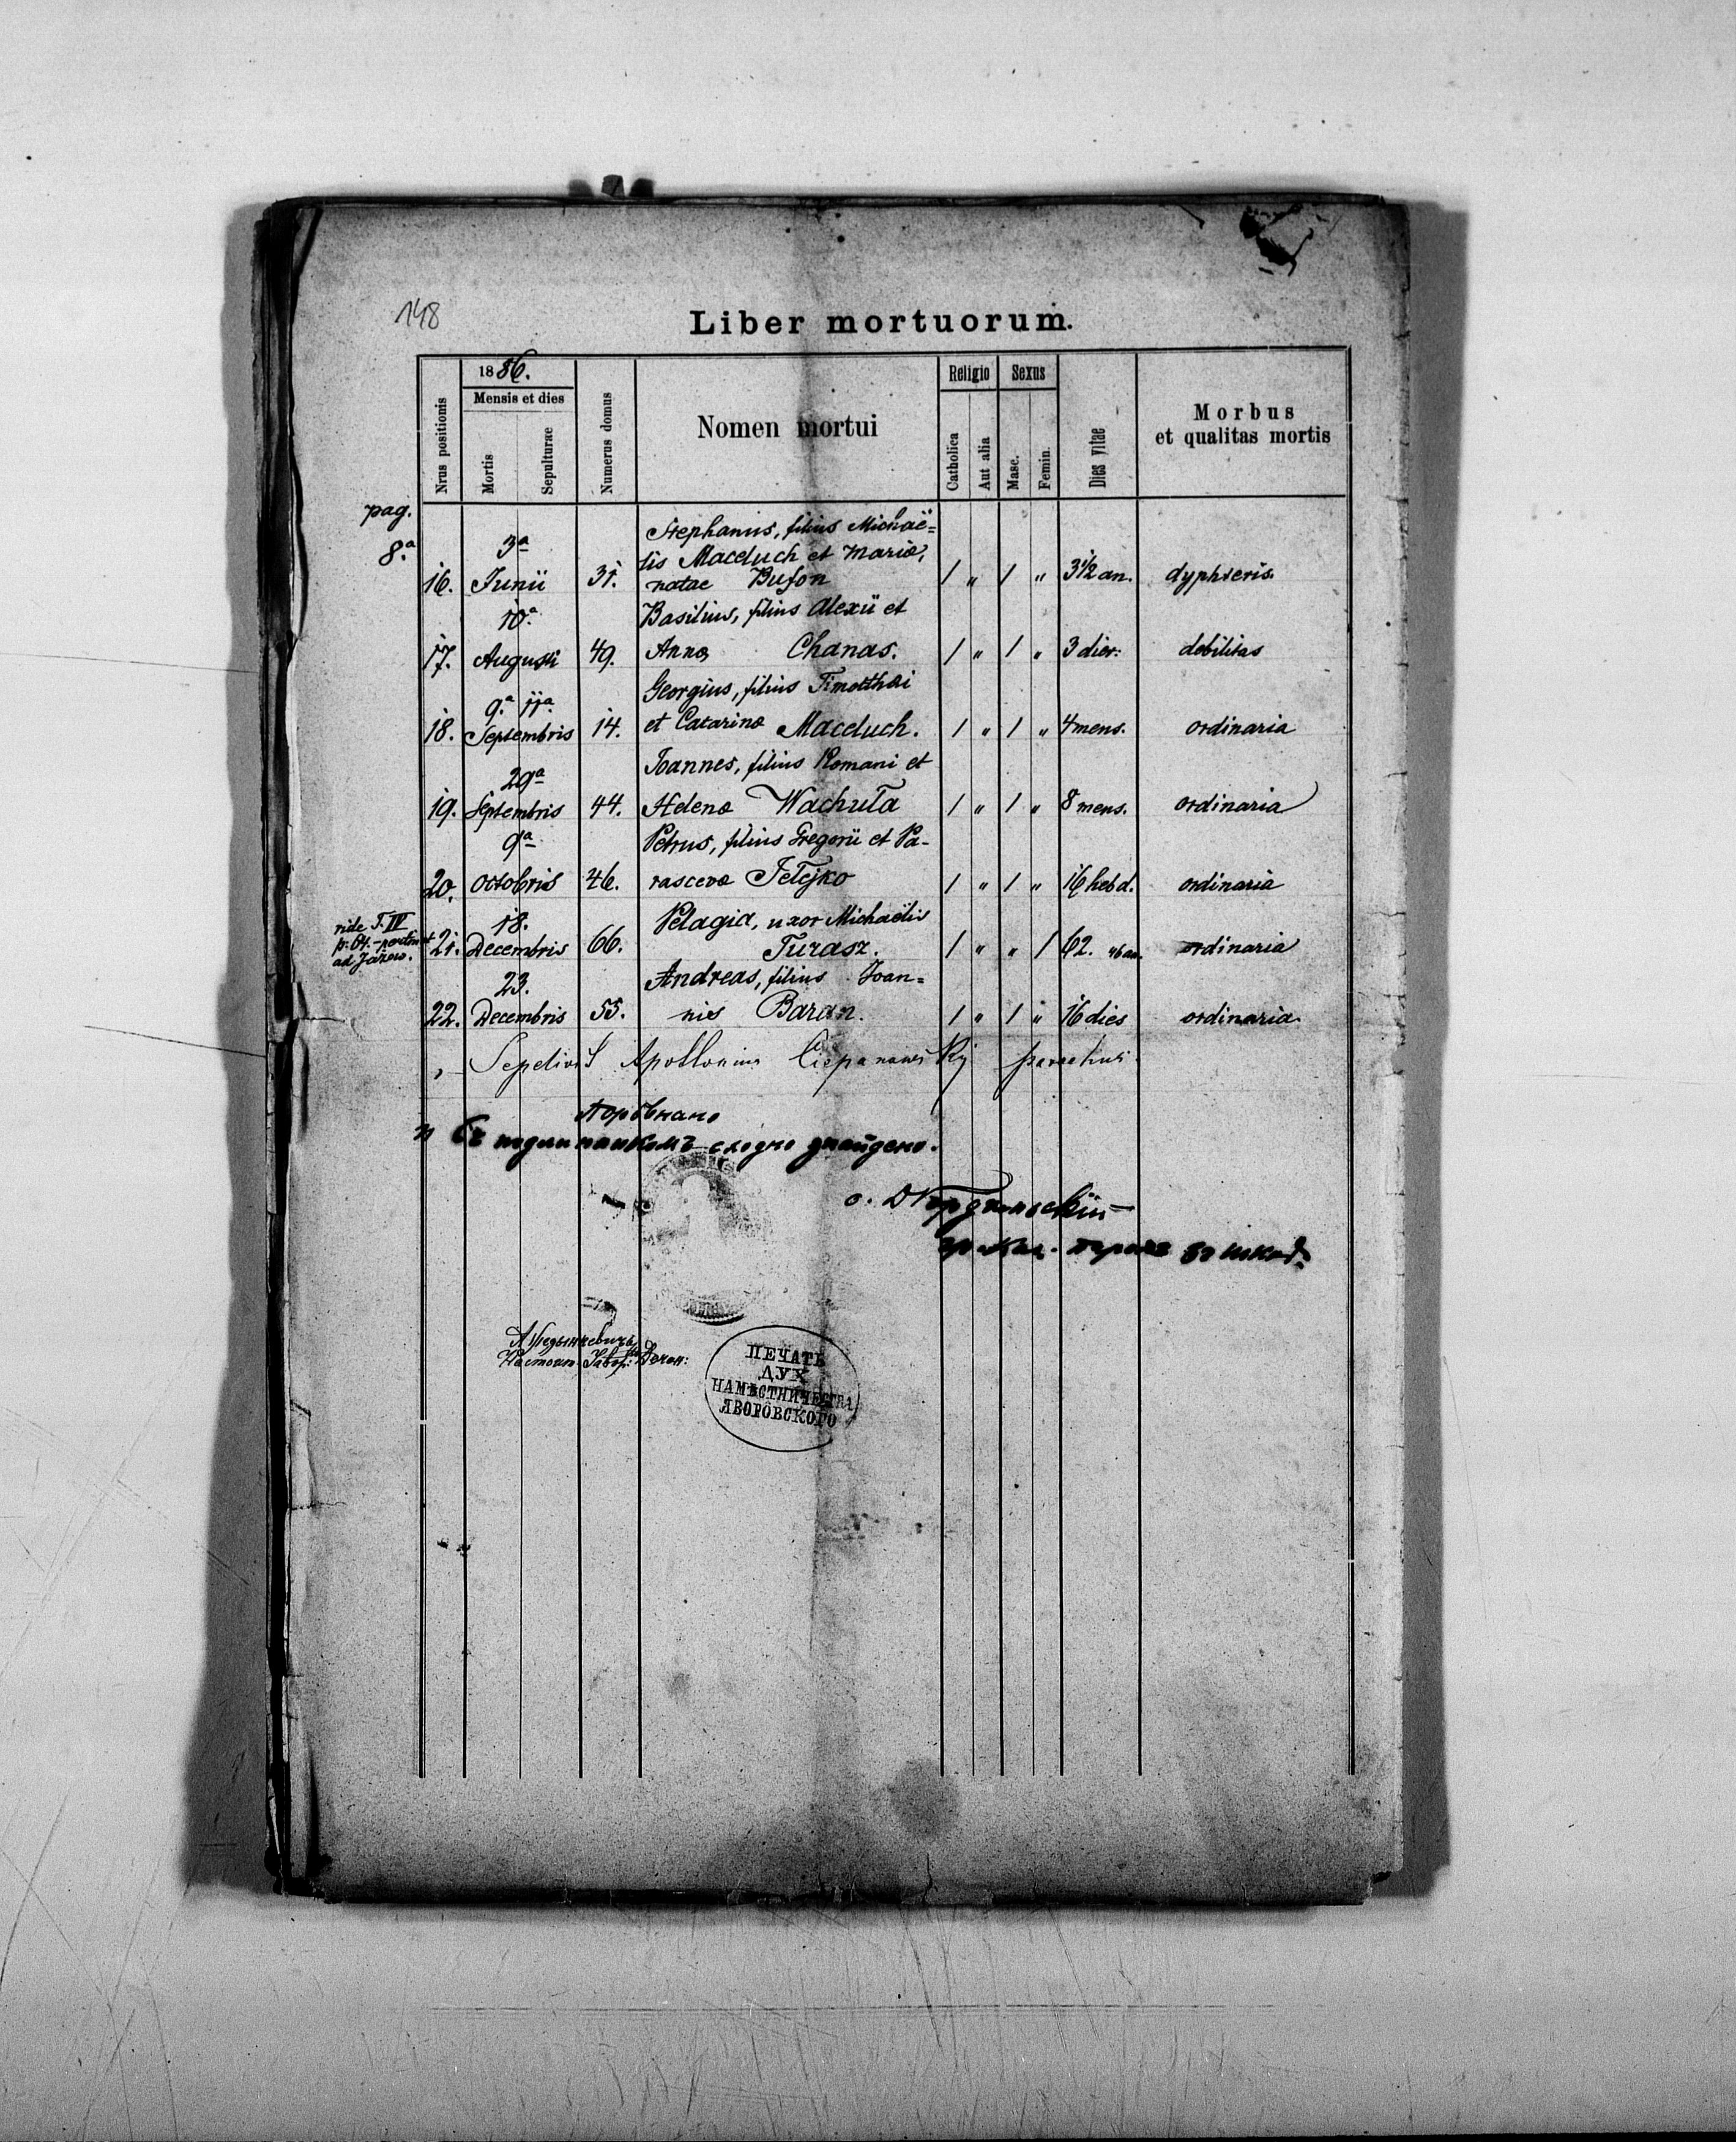 148
Liber mortuorum.
Nrus positionis
1886.
Mensis et dies
Mortis
Sepulturae
Numerus domus
Nomen mortui
Religio
Catholica
Aut alia
Sexus
Masc.
Femin.
Dies vitae
Morbus
et qualitas mortis
pag.
8.a
Stephanus, filius Michaë=
3a
lis Macduch et Mariæ,
16. Junii 31. natae Bufon 1 „ 1 „ 3 1/2 an. dyphteris.
10.a Basilius, filius Alexii et
17. Augusti 49. Annæ Chanas. 1 „ 1 „ 3 dier: debilitas
Georgius, filius Timotthæi
9.a 11a.
18. Septembris 14. et Catarinæ Macduch. 1 „ 1 „ 4 mens. ordinaria
Joannes, filius Romani et
29a
19. Septembris 44. Helenæ Wachuta 1 „ 1 „ 8 mens. ordinaria
9a Petrus, filius Gregorii et Pa-
20. Octobris 46. rascevæ Telejko 1 „ 1 „ 16 hebd. ordinaria
vide T. IV
ad Jazow.
18. Pelagia, uxor Michaëlis
21. Decembris 66. Turasz. 1 „ „ 1 62. 46 an. ordinaria
23. Andreas, filius Joan=
22. Decembris 55. nis Baran. 1 „ 1 „ 16 dies ordinaria.
Sepelivit Apollonius Ciepanowskij parochus.
Поровнано
и Съ подлинникомъ сходно знайдено.
ПЕЧАТЬ
ДУХ
НАМѢСТНИЧЕСТВА
ЯВОРОВСКОГО